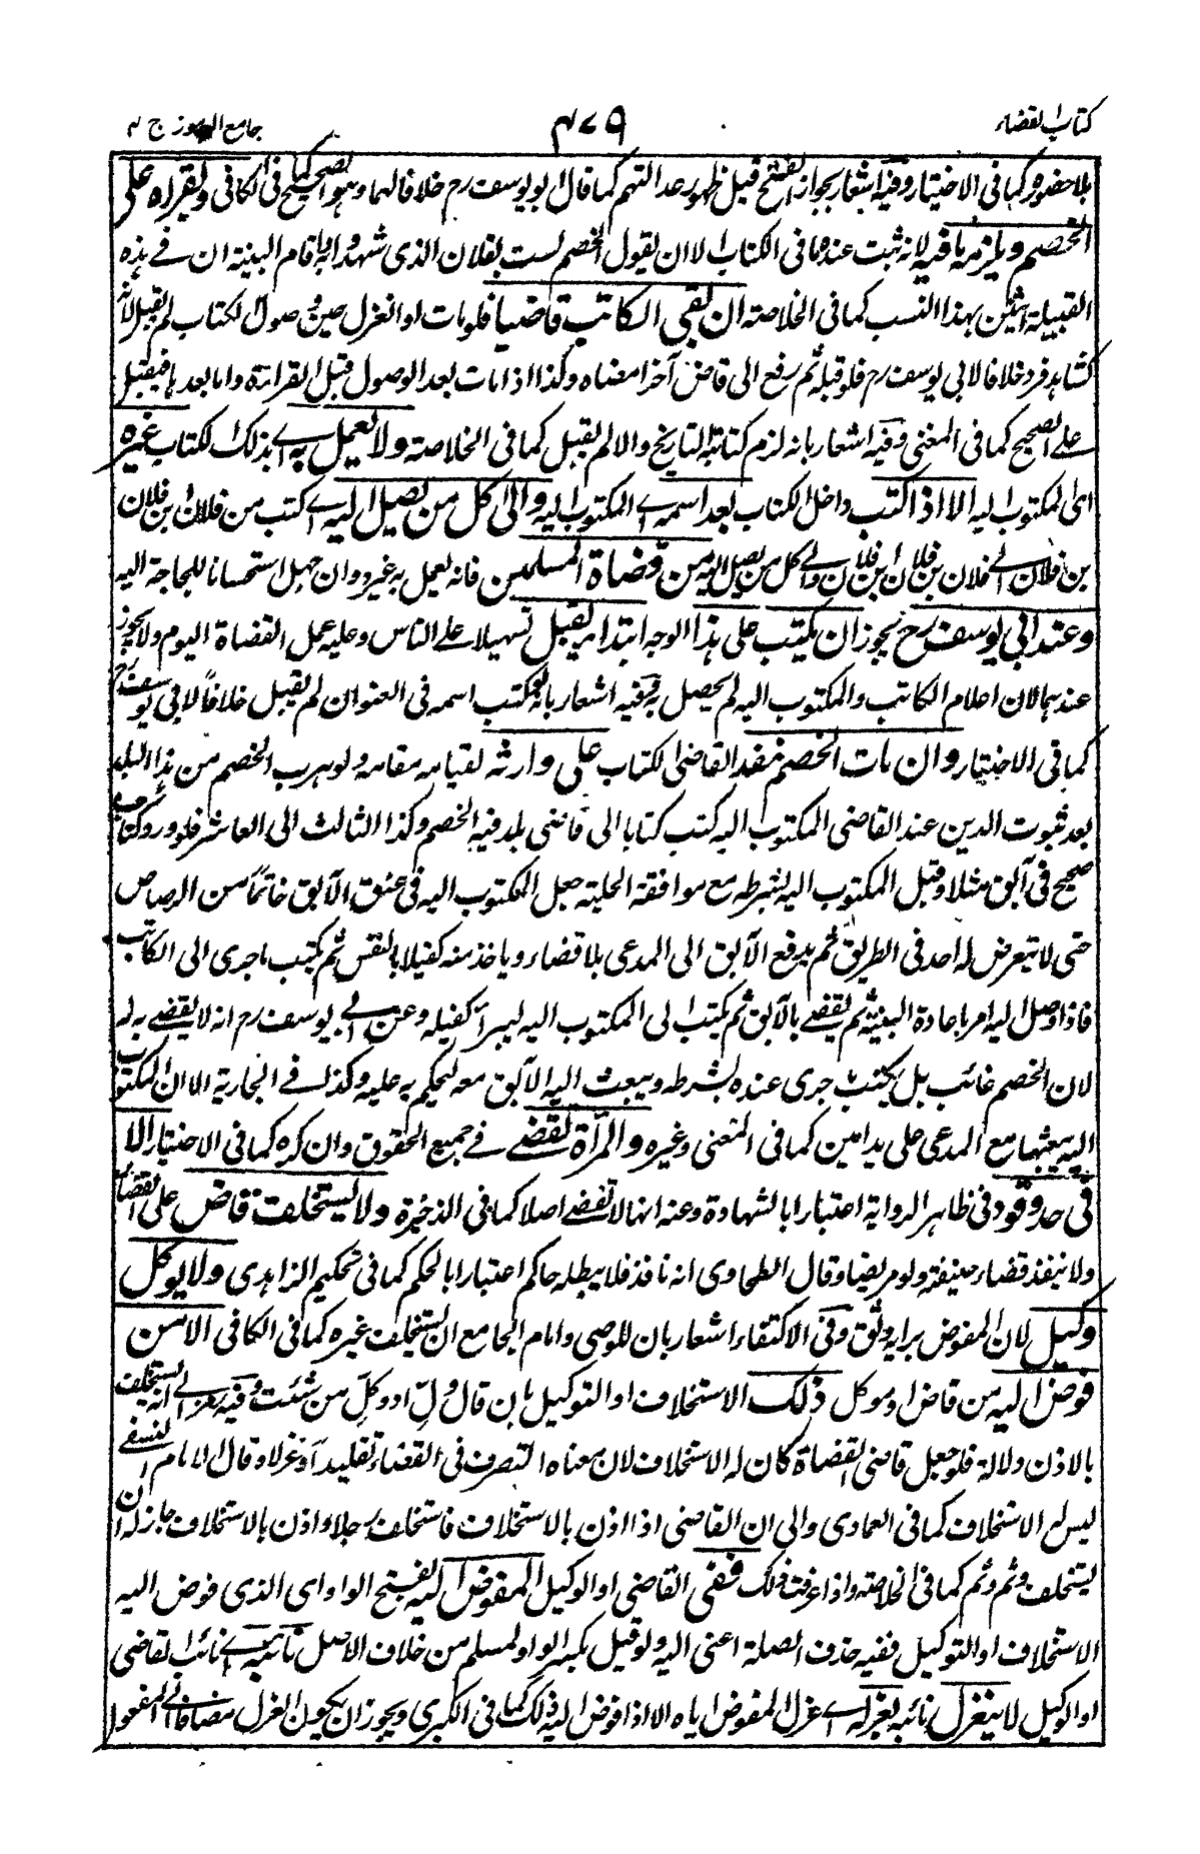 كتاب القضاء
٤٧٩
جامع الرموز ج ٢
بلا حضوره كما في الاختيار وفيه اشعار بجواز الفتح قبل ظهور عدالتهم كما قال ابو يوسف رح خلافا لهما وهو الصحيح كما في الكافي ويقراه على
الخصم ويلزمه ما فيه لانه ثبت عنده ما في الكتاب الا ان يقول الخصم لست بفلان الذي شهدوا به واقام البينة ان في هذه
القبيلة اثنين بهذا النسب كما في الخلاصة ان بقي الكاتب قاضيا فلو مات او انعزل حين وصول الكتاب لم يقبل لانه
كشاهد فرد خلافا لابي يوسف رح فلو قبله ثم رفع الى قاض آخر امضاه وكذا اذا مات بعد الوصول قبل القراءة واما بعدها فيقبل
على الصحيح كما في المغني وفيه اشعار بانه لزم كتابة التاريخ والا لم يقبل كما في الخلاصة ولا يعمل به اي بذلك الكتاب غيره
اى المكتوب اليه الا اذا كتب داخل الكتاب بعد اسمه اي المكتوب اليه والى كل من يصل اليه اي كتب من فلان بن فلان
بن فلان الى فلان بن فلان بن فلان والى كل من يصل اليه من قضاة المسلمين فانه يعمل به غيره وان جهل استحسانا للحاجة اليه
وعند ابي يوسف رح يجوز ان يكتب على هذا الوجه ابتداء يقبل تسهيلا على الناس وعليه عمل القضاة اليوم ولا يجوز
عندهما لان اعلام الكاتب والمكتوب اليه لم يحصل به وفيه اشعار بانه لو كتب اسمه في العنوان لم يقبل خلافاً لابي يوسف رح
كما في الاختيار وان مات الخصم ينفذ القاضي الكتاب على وارثه لقيامه مقامه ولو هرب الخصم من هذا البلد
بعد ثبوت الدين عند القاضي المكتوب اليه كتب كتابا الى قاضي بلد فيه الخصم وكذا الثالث الى العاشر فلو ورد كتاب
صحيح في آبق مثلا وقبل المكتوب اليه بشرطه مع موافقة الحلية جعل المكتوب اليه في عنق الآبق خاتماً من الرصاص
حتى لا يتعرض له احد في الطريق ثم يدفع الآبق الى المدعي بلا قضاء وياخذ منه كفيلا بالنفس ثم يكتب ما جرى الى الكاتب
فاذا وصل اليه امر باعادة البينة ثم يقضي بالآبق ثم يكتب الى المكتوب اليه ليبرأ كفيله وعن ابي يوسف رح انه لا يقضي به له
لان الخصم غائب بل يكتب جرى عنده بشرطه ويبعث اليه الآبق معه ليحكم به عليه وكذا في الجارية الا ان المكتوب
اليه يبعثها مع المدعي على يد امين كما في المغني وغيره والمرأة تقضي في جميع الحقوق وان كره كما في الاختيار الا
في حد وقود في ظاهر الرواية اعتبارا بالشهادة وعنه انها لا تقضي اصلا كما في الذخيرة ولا يستخلف قاض على القضاء
ولا ينفذ قضاء خليفته ولو مريضا وقال الطحاوي انه نافذ فلا يبطله حاكم اعتبارا بالحكم كما في تحكيم الزاهدي ولا يوكل
وكيل لان المفوض برايه وثق وفي الاكتفاء اشعار بان للوصي وامام الجامع ان يستخلف غيره كما في الكافي الا من
فوض اليه من قاض او موكل ذلك الاستخلاف او التوكيل بان قال ولِّ او وكل من شئت وفيه رمز الى انه يستخلف
بالاذن دلالة فلو جعل قاضي القضاة كان له الاستخلاف لان معناه التصرف في القضاء تقليدا وعزلا وقال الامام النسفي
ليس له الاستخلاف كما في العمادي والى ان القاضي اذا اذن بالاستخلاف فاستخلف رجلا واذن بالاستخلاف جاز له ان
يستخلف وثم وثم كما في الخلاصة واذا عرفت ذلك ففي القاضي او الوكيل المفوض اليه بفتح الواو اي الذي فوض اليه
الاستخلاف او التوكيل ففيه حذف الصلة اعني اليه ولو قيل بكسر الواو لسلم من خلاف الاصل نائبه اي نائب القاضي
او الوكيل لا ينعزل نائبه بعزله اي عزل المفوض اياه الا اذا فوض اليه ذلك كما في الكبرى ويجوز ان يكون العزل مضافا الى المفعول